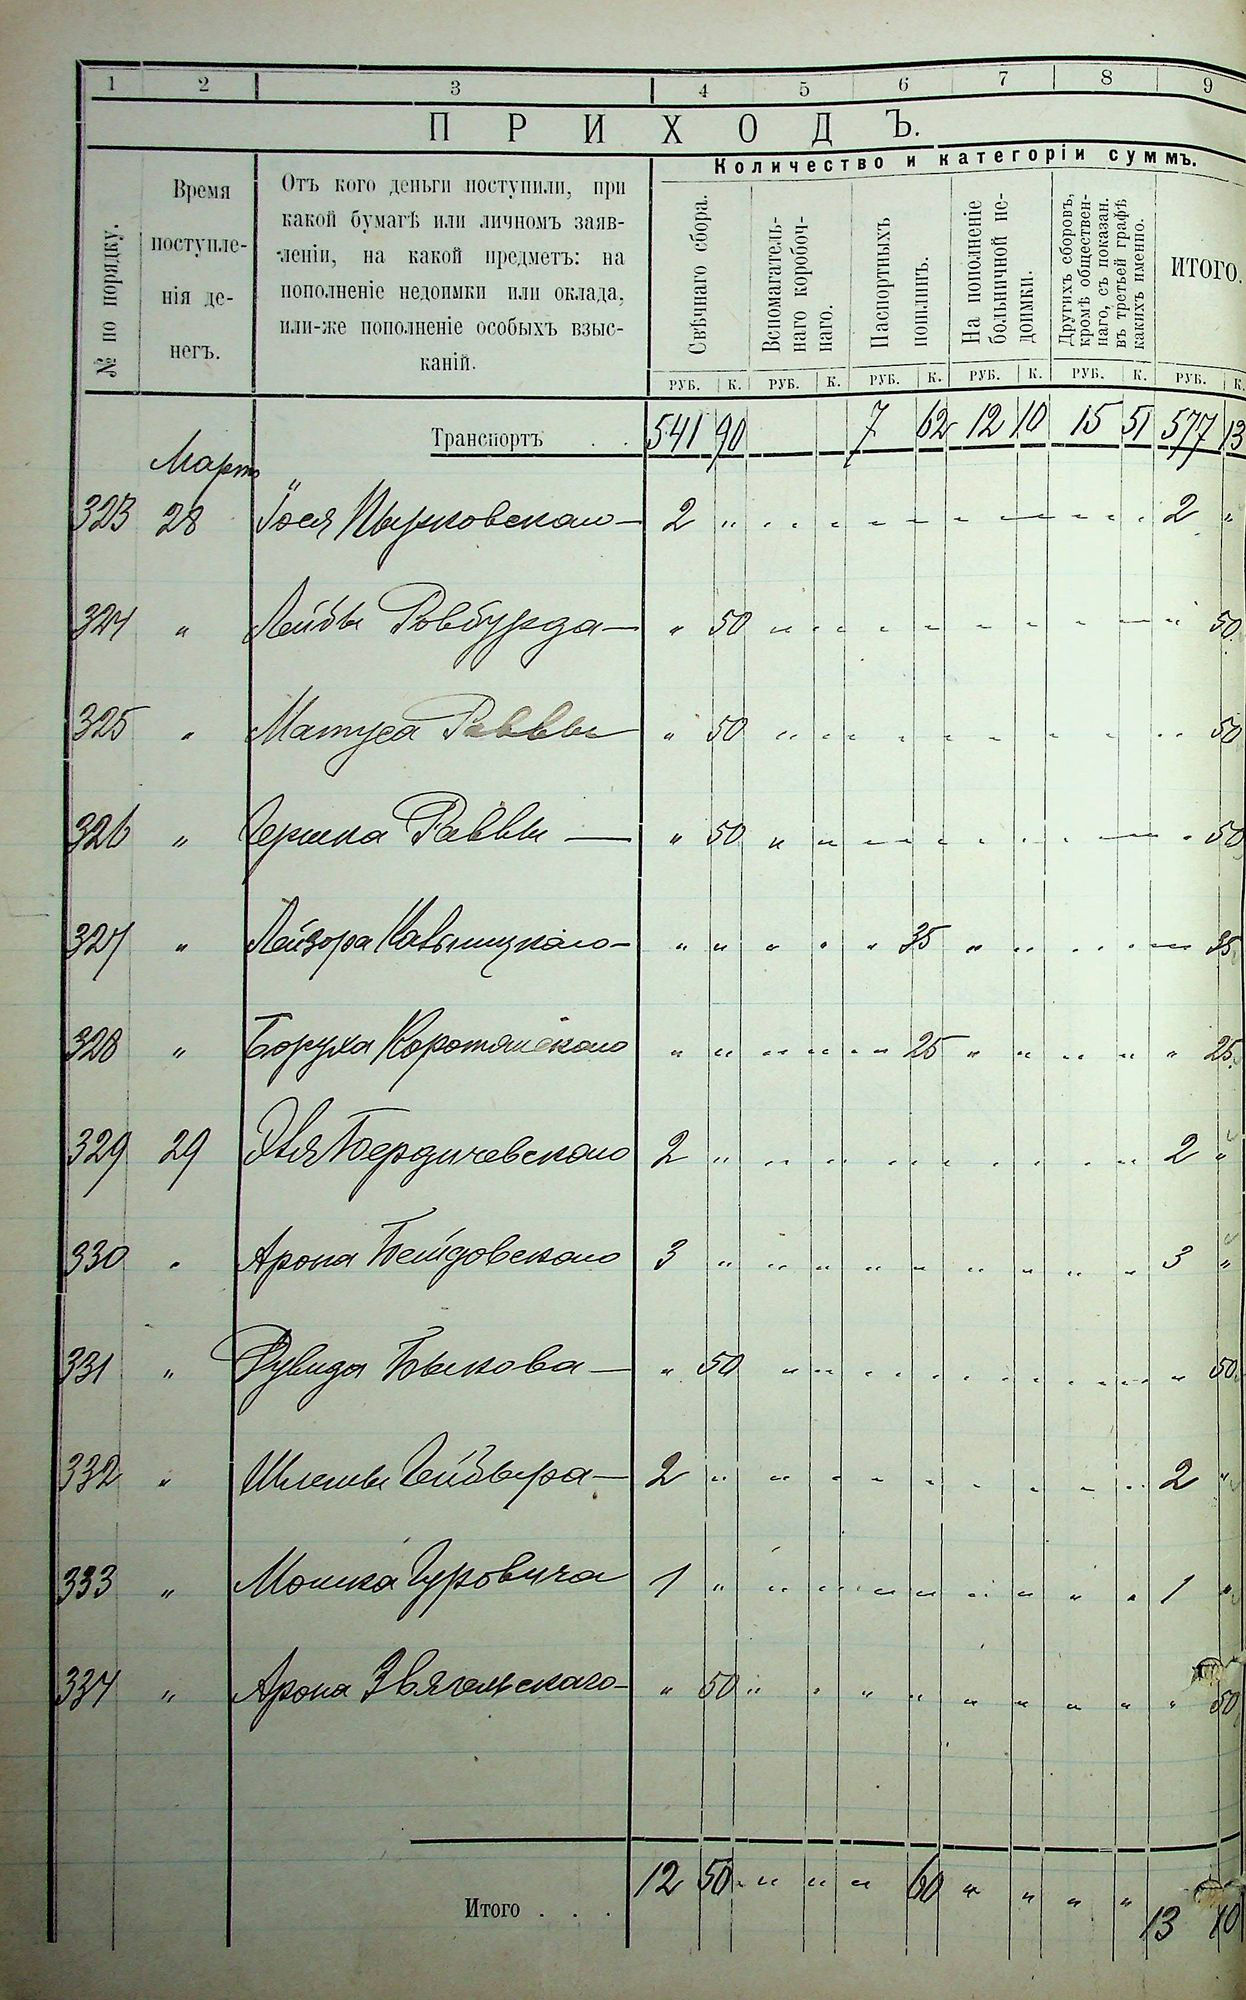 1 2 3 4 5 6 7 8 9
ПРИХОДЪ.
№ по порядку.
Время
поступле-
нія де-
негъ.
Отъ кого деньги поступили, при
какой бумагѣ или личномъ заяв-
леніи, на какой предметъ: на
пополненіе недоимки или оклада,
или-же пополненіе особыхъ взыс-
каній.
Количество и категоріи суммъ.
Свѣчнаго сбора.
Вспомагатель-
наго коробоч-
наго.
Паспортныхъ
пошлинъ.
На пополненіе
больничной не-
доимки.
Другихъ сборовъ,
кромѣ обществен-
наго, съ показан.
въ третьей графѣ
какихъ именно.
ИТОГО.
РУБ. К. РУБ. К. РУБ. К. РУБ. К. РУБ. К. РУБ. К.
Транспортъ . . 541 90 7 62 12 10 15 51 577 13
Мартъ
323 28 2 " 2 "
324 " Лейбы — " 50 50
325 " Матуса Раввы " 50 50
326 " Гершка Раввы — " 50 50
327 " Лейзора — " " 35 35
328 " Боруха " " 25 " 25
329 29 Бердичевского 2 " 2 "
330 " Арона Бейдовского 3 " 3 "
331 " Дувида Быкова — " 50 " 50
332 " Шлемы — 2 " 2 "
333 " Мошка Гуровича 1 " 1 "
334 " Арона Звягельскаго — " 50 " 50
Итого . . . 12 50 60 13 10